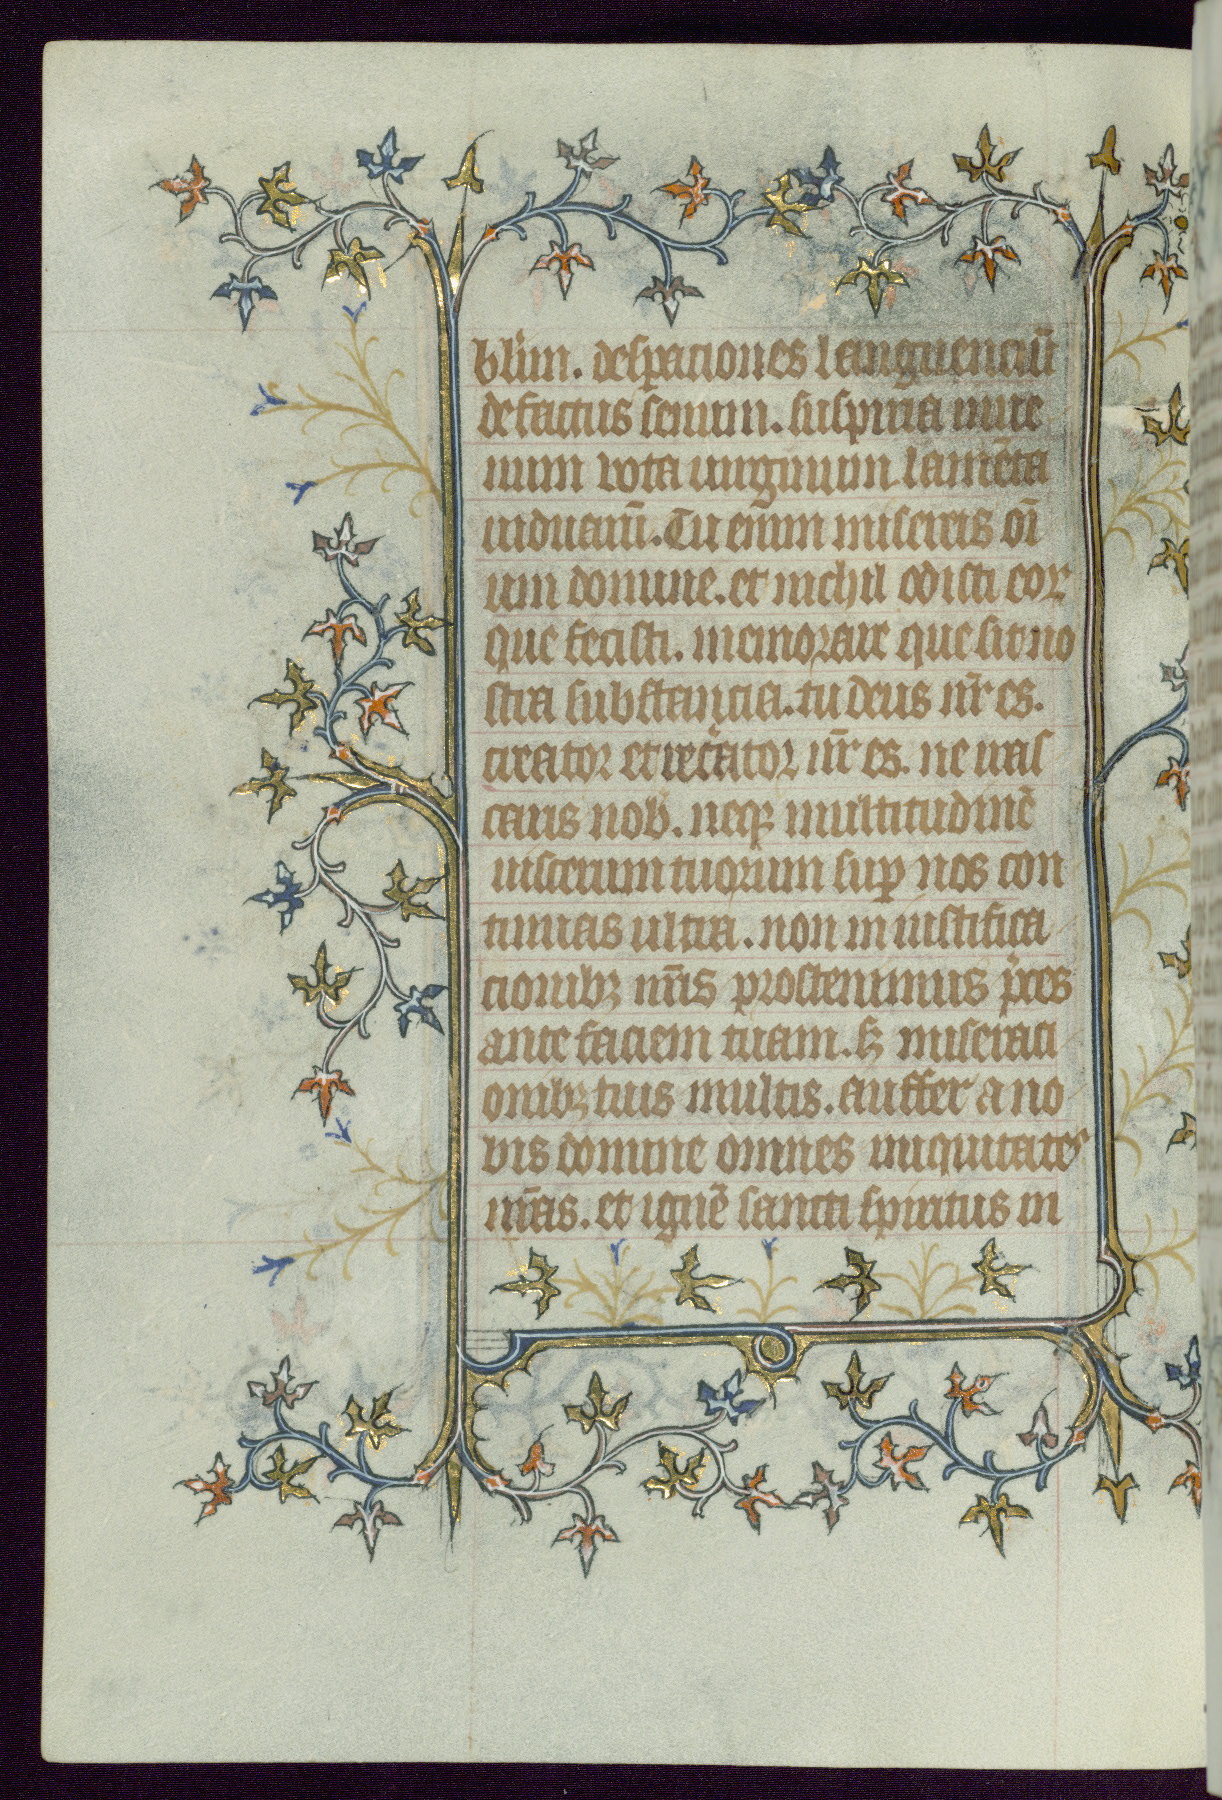 blim. desp̱aciones languenciū
defectus senum. suspiria iuue
num vota uirginum lamēta
uiduarū. Tu enim misereris oī
um domine. et nichil odisti eor
que fecisti. memorare que sit no
stra substancia. tu deus nr̄ es.
creator et recͣator nr̄ es. ne iras
caris nob̄. neqꝫ multitudinē
uiscerum tuorum suꝑ nos con
tineas ultra. non in iustifica
cionibꝫ nr̄is prosternimus p̄ces
ante faciem tuam. sꝫ miseraci
onibꝫ tuis multis. auffer a no
bis domine omnes iniquitates
nr̄as. et ignē sancti spiritus in